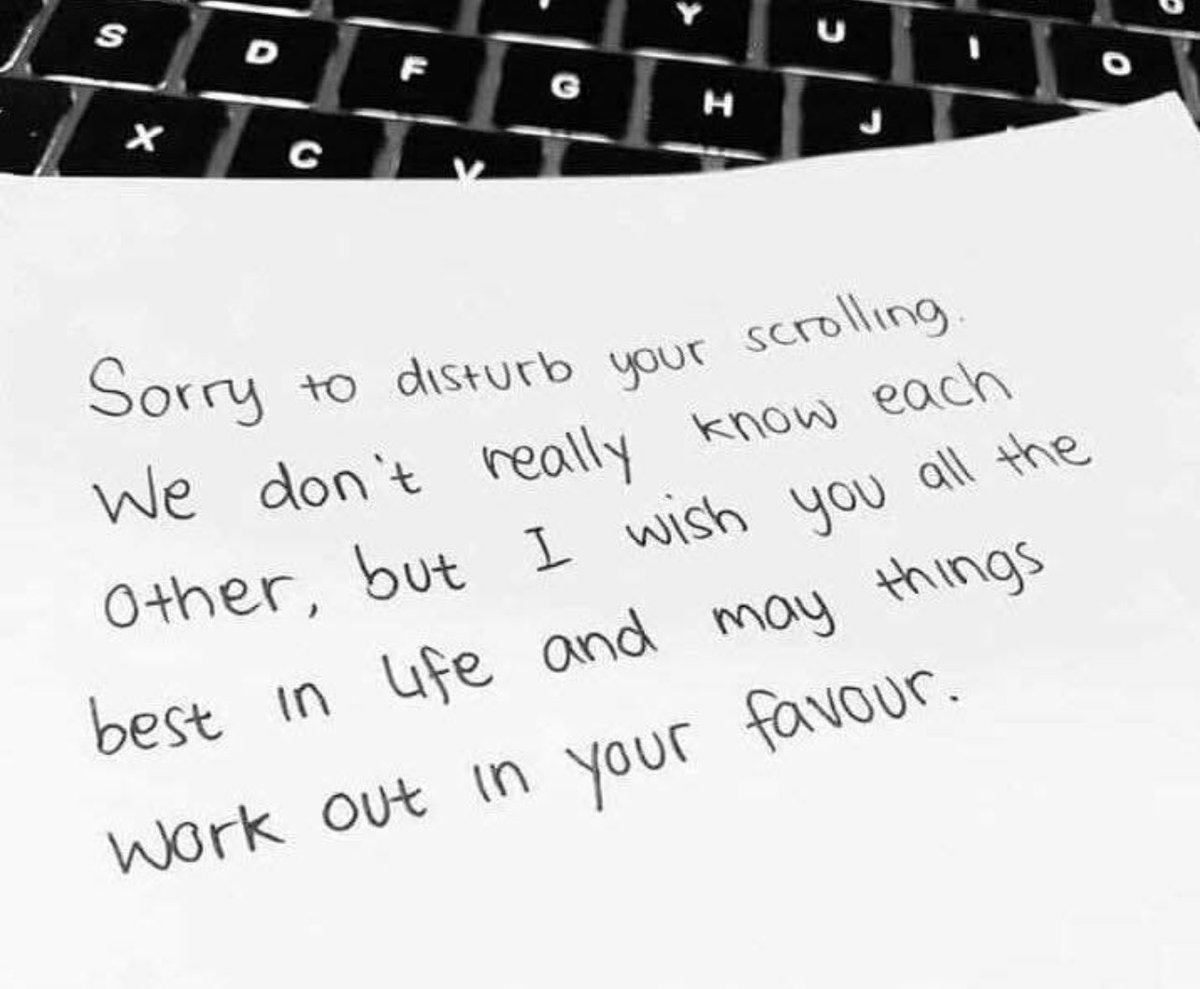 S D F G H Y U I O
X C V J
Sorry to disturb your scrolling.
We don't really know each
other, but I wish you all the
best in life and may things
work out in your favour.